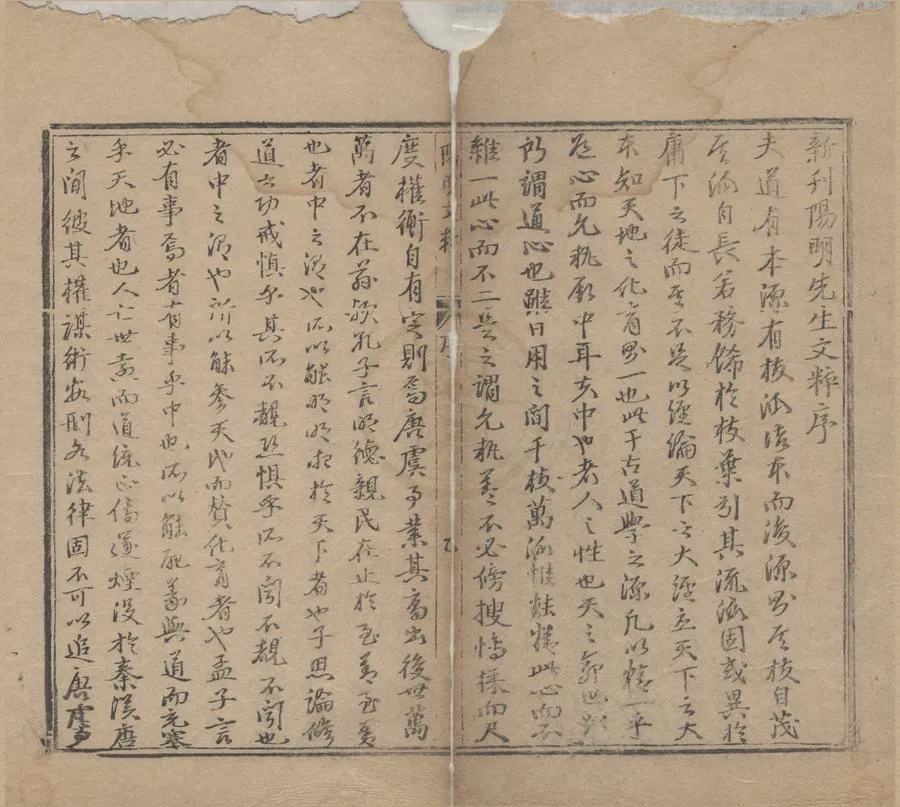 新刊陽明先生文粹序
夫道有本源有枝派本而浚源則其枝自茂
其派自長若務飾於枝葉引其流派固或異於
庸下之徒而不足以經綸天下之大經立天下之大
本知天地之化育則一也此千古道學之源凡以精一乎
道心而允執厥中耳夫中也者人之性也天之命也則
所謂道心也雖日用之間千枝萬派惟精此心而不
雜一此心而不二是之謂允執若不必傍搜博採而尺
陽明文粹 序
度權衡自有定則焉唐虞事業其高出後世萬
萬者不在茲歟孔子言明德親民在止於至善至善
也者中之謂也所以能明明於天下者也子思論修
道之功戒慎乎其所不覩恐懼乎所不聞不覩不聞也
者中之謂也所以能參天地而贊化育者也孟子言
必有事焉者有事乎中也所以能配義與道而充塞
乎天地者也人亡世衰而道統正傳遂煙没於秦漢唐
之間彼其權謀術數刑名法律固不可以追唐虞